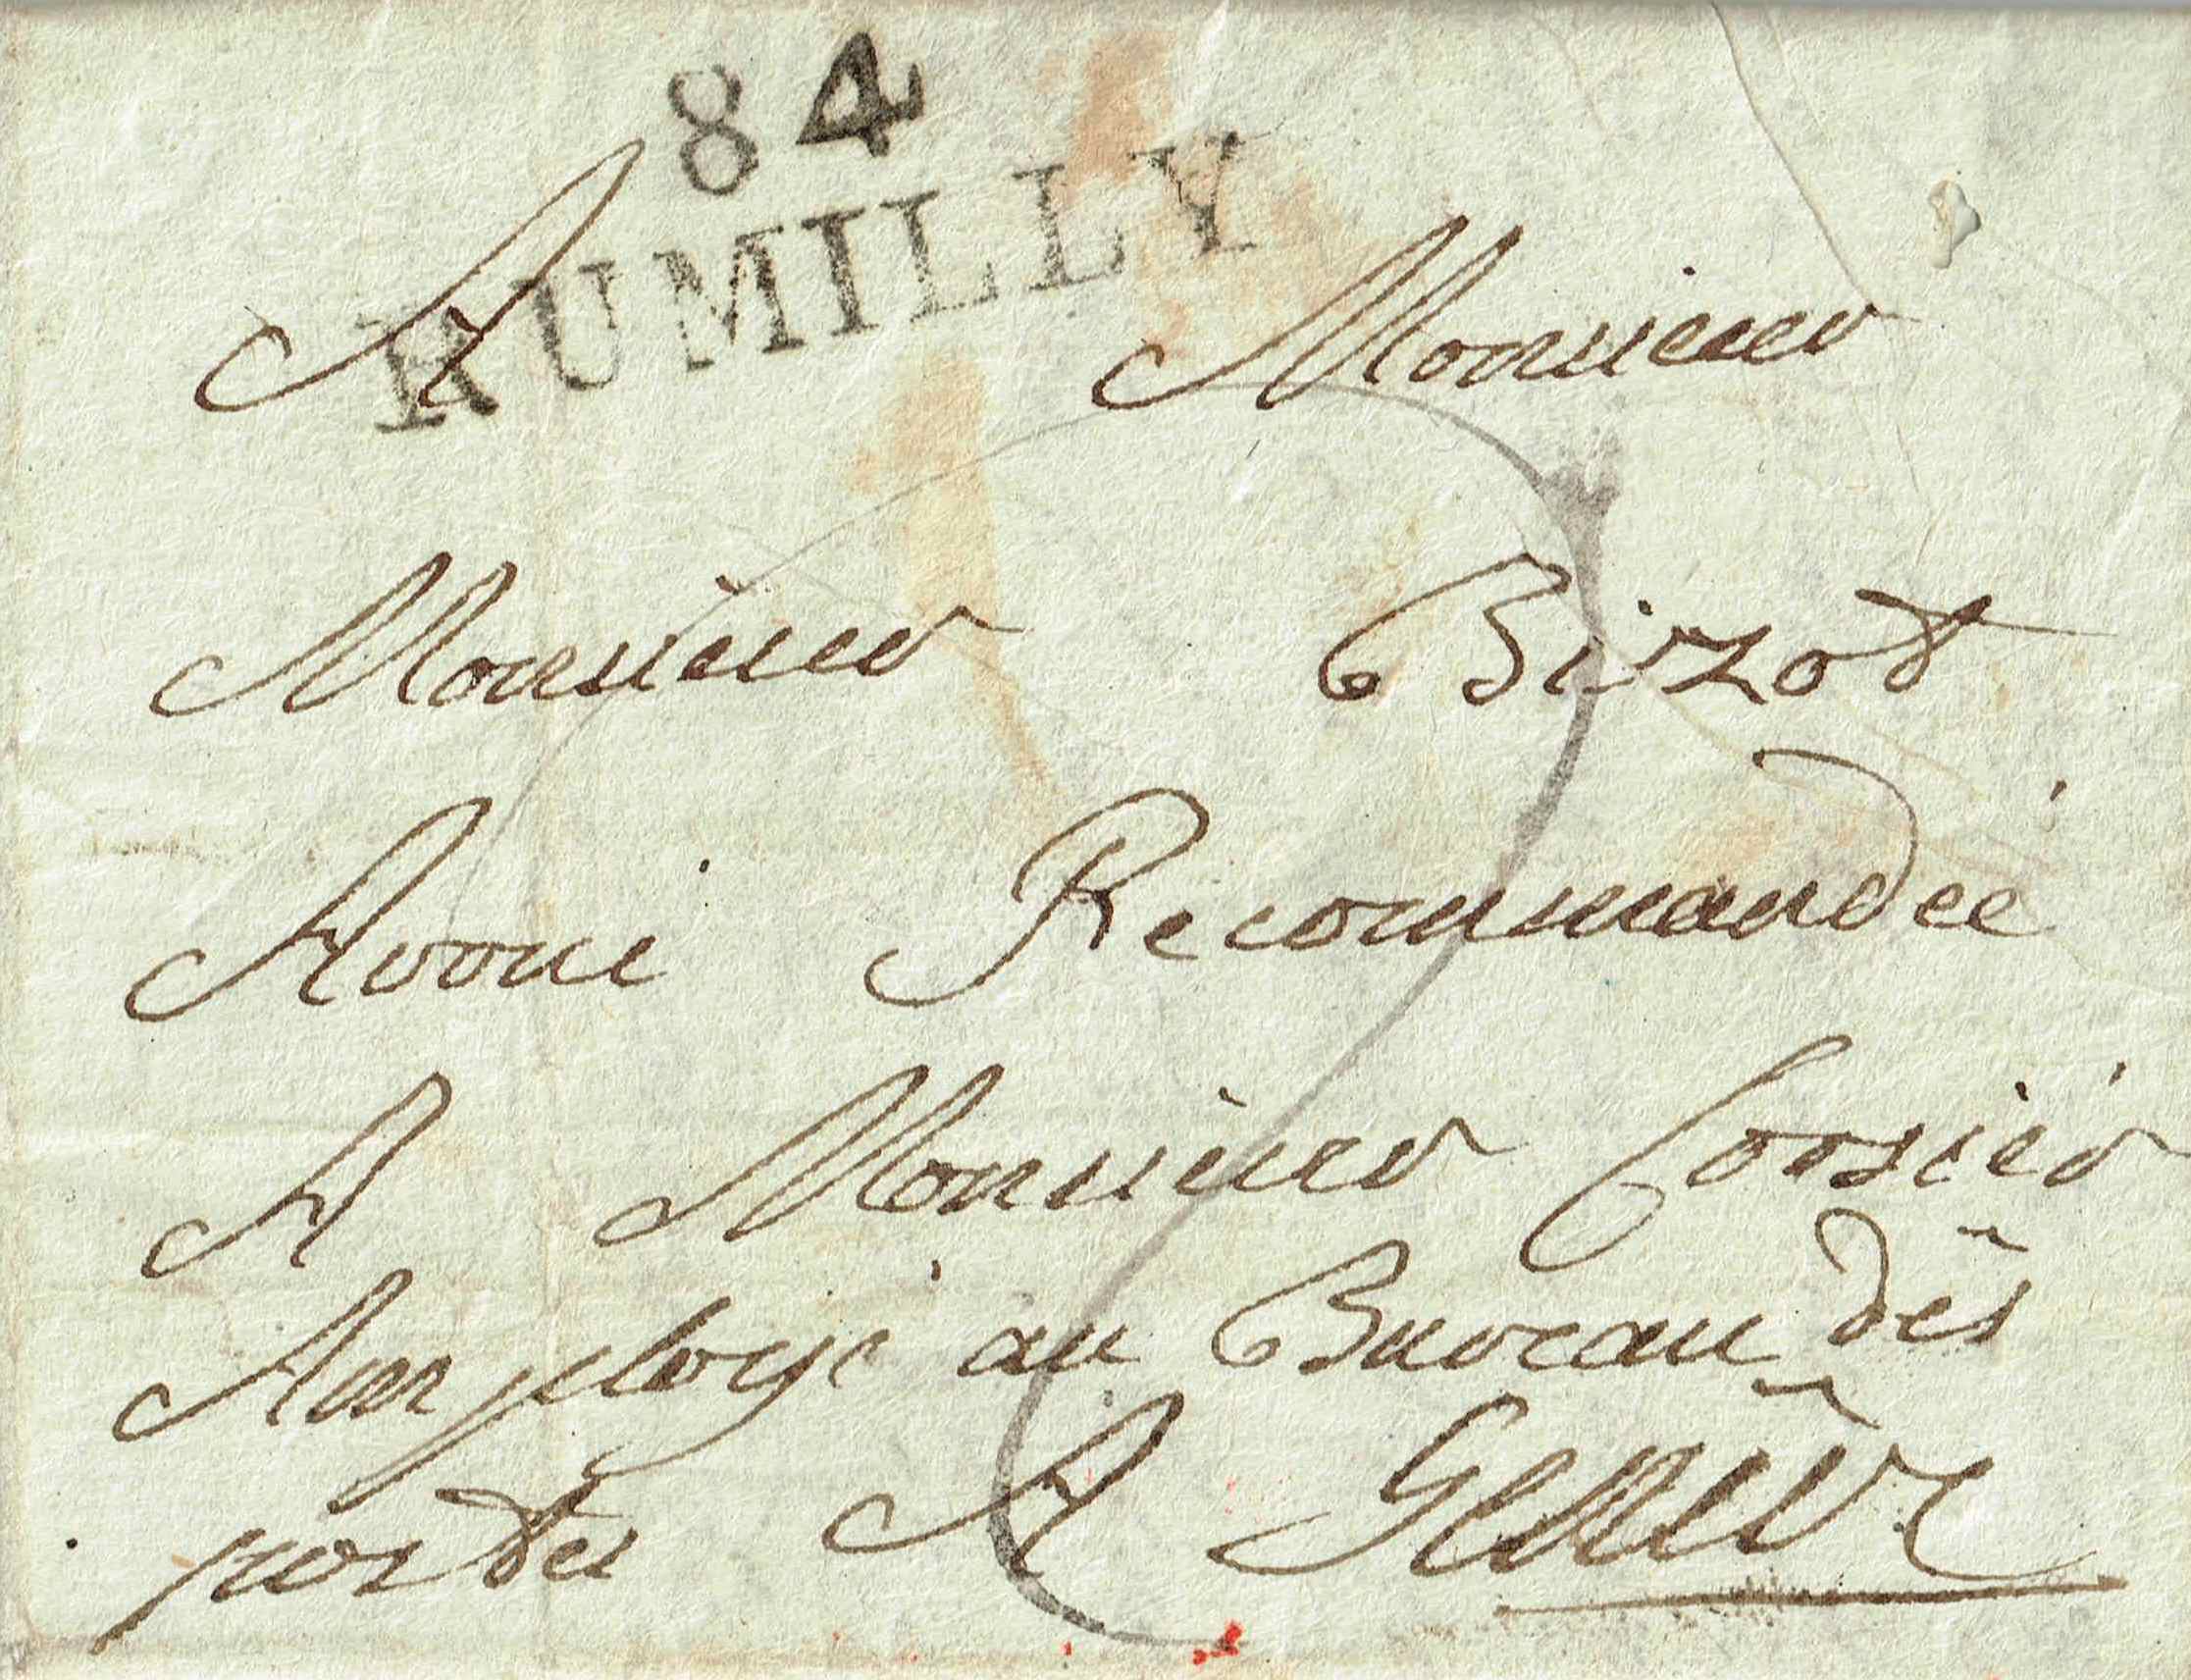 84
RUMILLY
A Monsieur
Monsieur Bizot
Avoué Recommandée
A Monsieur
Amployé au Bureau des
postes A Genève